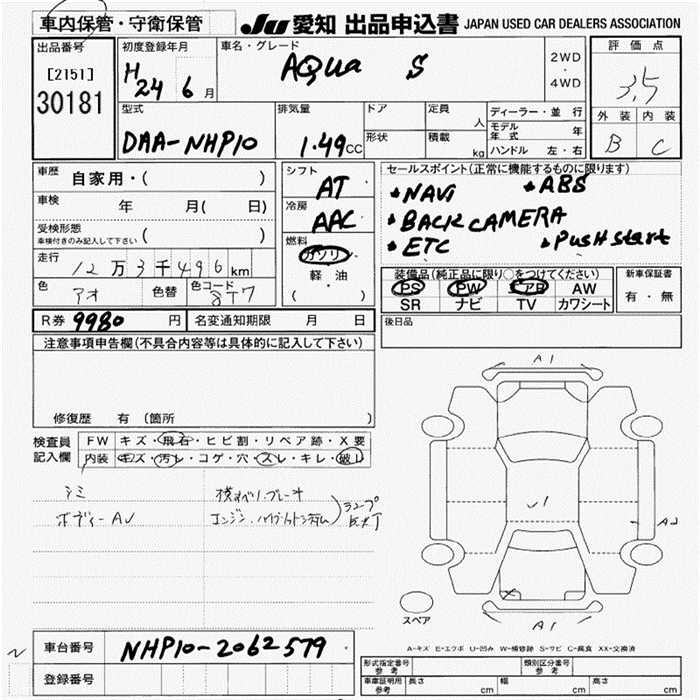 車内保管・守衛保管
JU 愛知 出品申込書 JAPAN USED CAR DEALERS ASSOCIATION
出品番号
[2151]
30181
初度登録年月
H 24 6 月
車名・グレード
AQUA S
2WD
・
4WD
評価点
3.5
外装 内装
B C
型式
DAA-NHP10
排気量
1.49CC
ドア
定員
人
形状
積載
kg
ディーラー・並行
モデル年式 年
ハンドル 左・右
車歴 自家用・( )
車検 年 月( 日)
受検形態
車検付きのみ記入して下さい ( )
走行
12万3千496km
色 アオ
色替
色コード 8T7
シフト
AT
冷房
AAC
燃料
ガソリン
軽・油
( )
セールスポイント(正常に機能するものに限ります)
・NAVI ・ABS
・BACK CAMERA
・ETC ・Push start
装備品(純正品に限り○をつけてください)
PS PW エアB AW
SR ナビ TV カワシート
新車保証書
有・無
R券 9980 円
名変通知期限 月 日
後日品
注意事項申告欄(不具合内容等は具体的に記入して下さい)
修復歴 有 (箇所 )
検査員記入欄
FW キズ・飛石・ヒビ割・リペア跡・X要
内装 キズ・汚レ・コゲ・穴・スレ・キレ・破レ
シミ
ボディーAU
横すべり・ブレーキ
エンジン・ハイブリットシステム
ランプ
点灯
A1
1
A2
X
A1
スペア
A-キズ E-エクボ U-凹み W-補修跡 S-サビ C-腐食 XX-交換済
車台番号 NHP10-2062579
登録番号
型式指定番号 参考
類別区分番号 参考
車庫証明用 参考
長さ cm
幅 cm
高さ cm